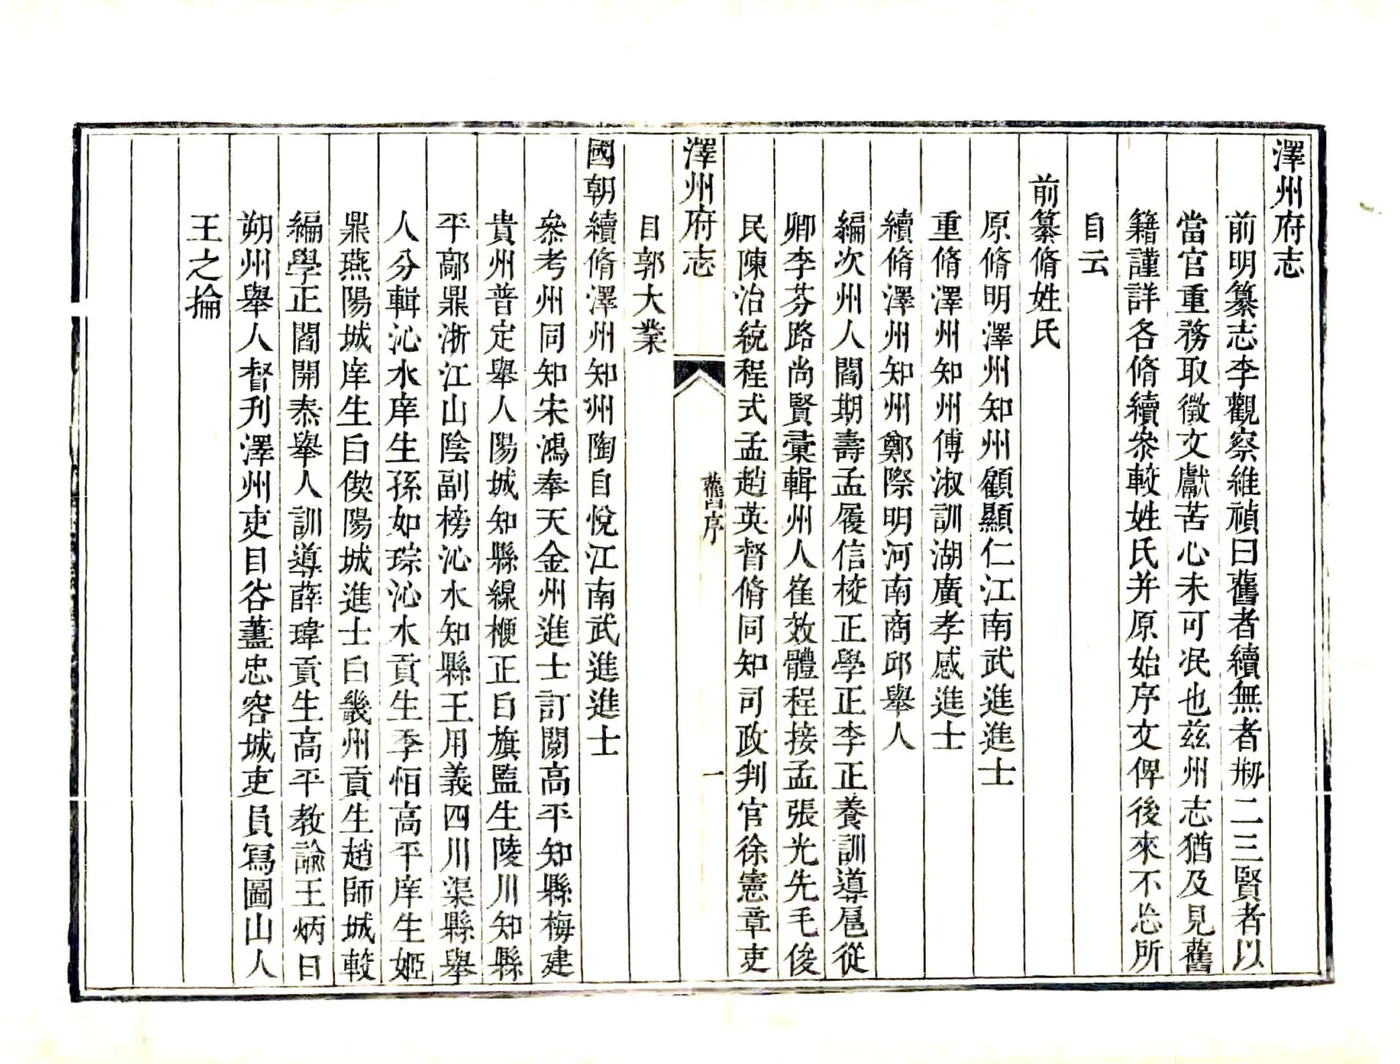 澤州府志
前明纂志李觀察維禎曰舊者續無者刱二三賢者以
當官重務取徵文獻苦心未可泯也兹州志猶及見舊
籍謹詳各脩續叅較姓氏并原始序文俾後來不忘所
自云
前纂脩姓氏
原脩明澤州知州顧顯仁江南武進進士
重脩澤州知州傅淑訓湖廣孝感進士
續脩澤州知州鄭際明河南商邱舉人
編次州人閻期壽孟履信校正學正李正養訓導扈從
卿李芬路尚賢彚輯州人崔效體程接孟張光先毛俊
民陳治統程式孟趙英督脩同知司政判官徐憲章吏
澤州府志
舊序
一
目郭大業
國朝續脩澤州知州陶自悅江南武進進士
叅考州同知宋鴻奉天金州進士訂閱高平知縣梅建
貴州普定舉人陽城知縣線㮌正白旗監生陵川知縣
平鄗鼎浙江山陰副榜沁水知縣王用義四川渠縣舉
人分輯沁水庠生孫如琮沁水貢生季怕高平庠生姬
鼎燕陽城庠生白偀陽城進士白畿州貢生趙師城較
編學正閻開泰舉人訓導薛瑋貢生高平教諭王炳日
朔州舉人督刋澤州吏目谷藎忠容城吏員寫圖山人
王之掄